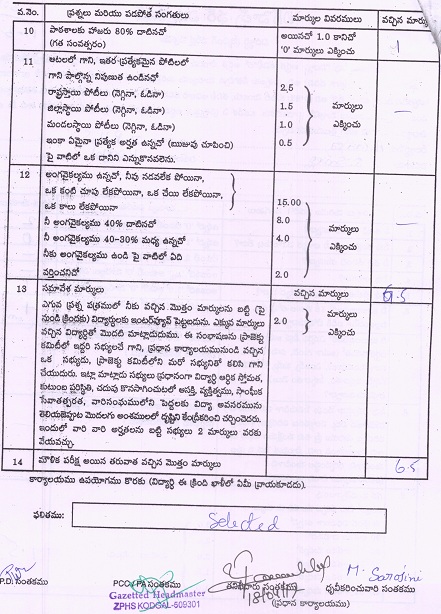 వ.నెం. ప్రశ్నలు మరియు పడపోత సంగతులు మార్కుల వివరములు వచ్చిన మార్కు
10 పాఠశాలకు హాజరు 80% దాటినచో అయినచో 1.0 కానిచో
(గత సంవత్సరం) '0' మార్కులు ఎక్కించు 1
11 ఆటలలో గాని, ఇతర ప్రత్యేకమైన పోటిలలో
గాని పాల్గొన్న నిపుణత ఉండినచో
రాష్ట్రస్థాయి పోటీలు (నెగ్గినా, ఓడినా) 2.5
జిల్లాస్థాయి పోటీలు (నెగ్గినా, ఓడినా) 1.5 మార్కులు —
మండలస్థాయి పోటీలు (నెగ్గినా, ఓడినా) 1.0 ఎక్కించు
ఇంకా ఏమైనా ప్రత్యేక అర్హత ఉన్నచో (ఋజువు చూపించి) 0.5
పై వాటిలో ఒక దానిని ఎన్నుకొనవలెను.
12 అంగవైకల్యము ఉన్నచో, నీవు నడవలేక పోయినా,
ఒక కంటి చూపు లేకపోయినా, ఒక చేయి లేకపోయినా,
ఒక కాలు లేకపోయినా 15.00
నీ అంగవైకల్యము 40% దాటినచో 8.0 మార్కులు —
నీ అంగవైకల్యము 40-30% మధ్య ఉన్నచో 4.0 ఎక్కించు
నీకు అంగవైకల్యము ఉండి పై వాటిలో ఏది
వర్తించనిచో 2.0
13 సమావేశ మార్కులు వచ్చిన మార్కులు 0.5
ఎగువ ప్రశ్న పత్రములో నీకు వచ్చిన మొత్తం మార్కులను బట్టి (పై
నుండి క్రిందకు) విద్యార్థులకు ఇంటర్వ్యూన్ పెట్టబడును. ఎక్కువ మార్కులు 2.0 మార్కులు
వచ్చిన విద్యార్థితో మొదటి మాట్లాడుదుము. ఈ సంభాషణను ప్రాజెక్టు ఎక్కించు
కమిటీలో ఇద్దరి సభ్యులచే గాని, ప్రధాన కార్యాలయమునుండి వచ్చిన
ఒక సభ్యుడు, ప్రాజెక్టు కమిటీలోని మరో సభ్యునితో కలిసి గాని
చేయుదురు. ఇట్లా మాట్లాడు సభ్యులు ప్రధానంగా విద్యార్థి ఆర్థిక స్తోమత,
కుటుంబ పరిస్థితి, చదువు కొనసాగించుటలో ఆసక్తి, వ్యక్తిత్వము, సాంఘీక
సేవాతత్పరత, వారిసంఘములోని పెద్దలకు విద్యా అవసరమును
తెలియజెప్పుట మొదలగు అంశములలో దృష్టిని కేంద్రీకరించి చర్చించెదరు.
ఇందులో వారి వారి అర్హతలను బట్టి సభ్యులు 2 మార్కులు వరకు
వేయవచ్చు.
14 మౌళిక పరీక్ష అయిన తరువాత వచ్చిన మొత్తం మార్కులు 6.5
కార్యాలయము ఉపయోగము కొరకు (విద్యార్థి ఈ క్రింది ఖాళీలో ఏమీ వ్రాయకూడదు).
ఫలితము: Selected
M. Sarojini
P.D. సంతకము PCO / PA సంతకము సంతకము ధృవీకరించువారి సంతకము
Gazetted Headmaster (ప్రధాన కార్యాలయము)
ZPHS KODGAL-509301